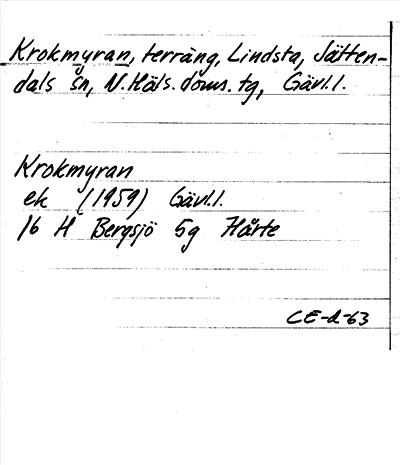 Krokmyran, terräng, Lindsta, Jätten-
dals sn, N. Häls. doms. tg, Gävl.l.
Krokmyran
ek (1959) Gävl.l.
16 H Bergsjö 5g Hårte
CE-d-63